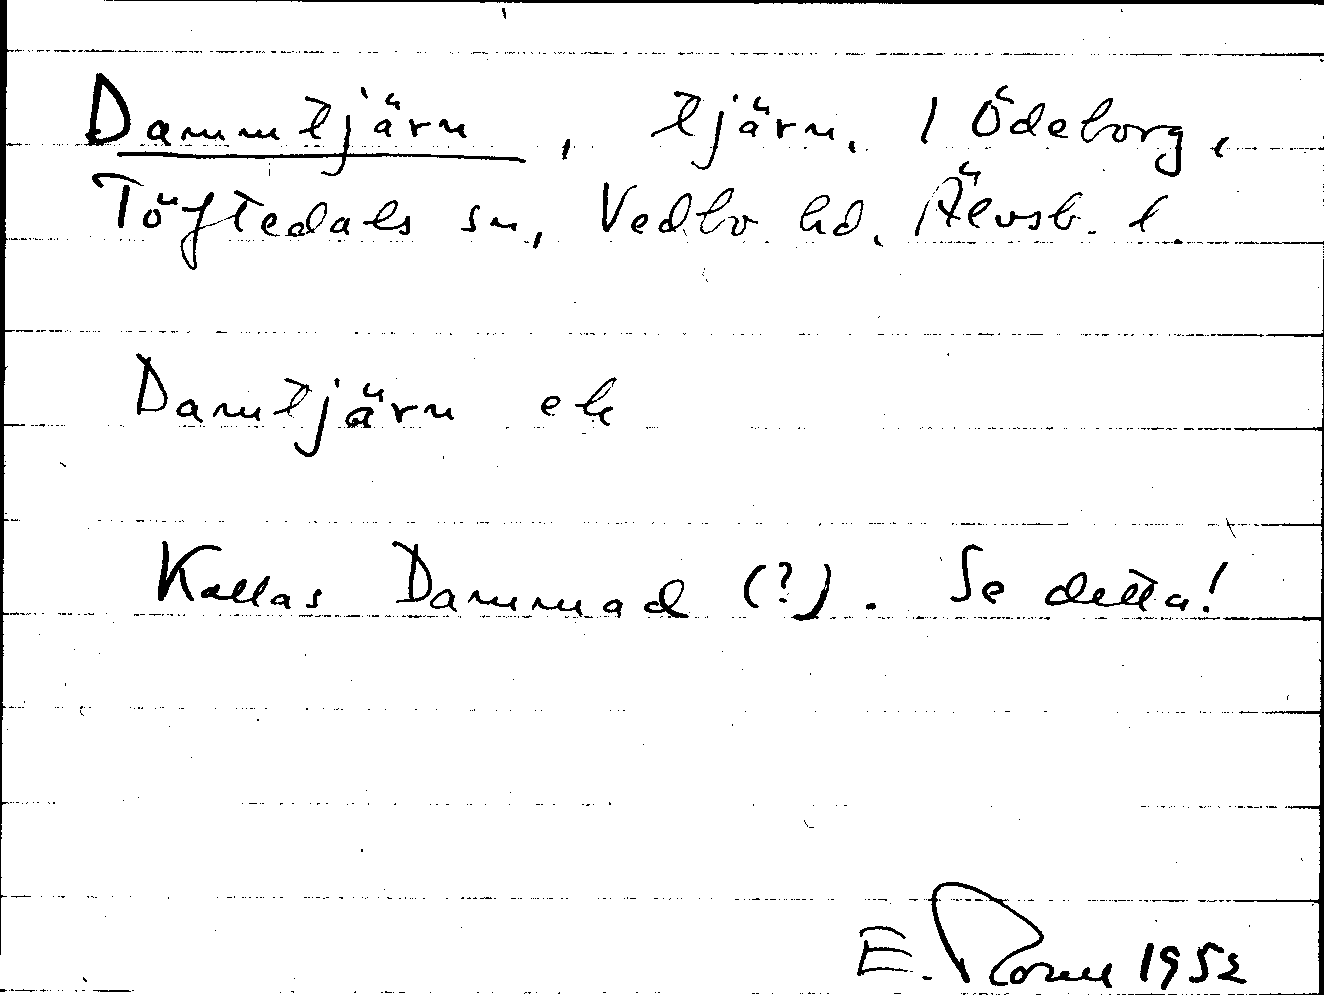 Dammtjärn, tjärn, / Ödeborg,
Töftedals sn, Vedbo hd. Älvsb. l.
Damtjärn ek
Kallas Dammad (?). Se detta!
E. 1952